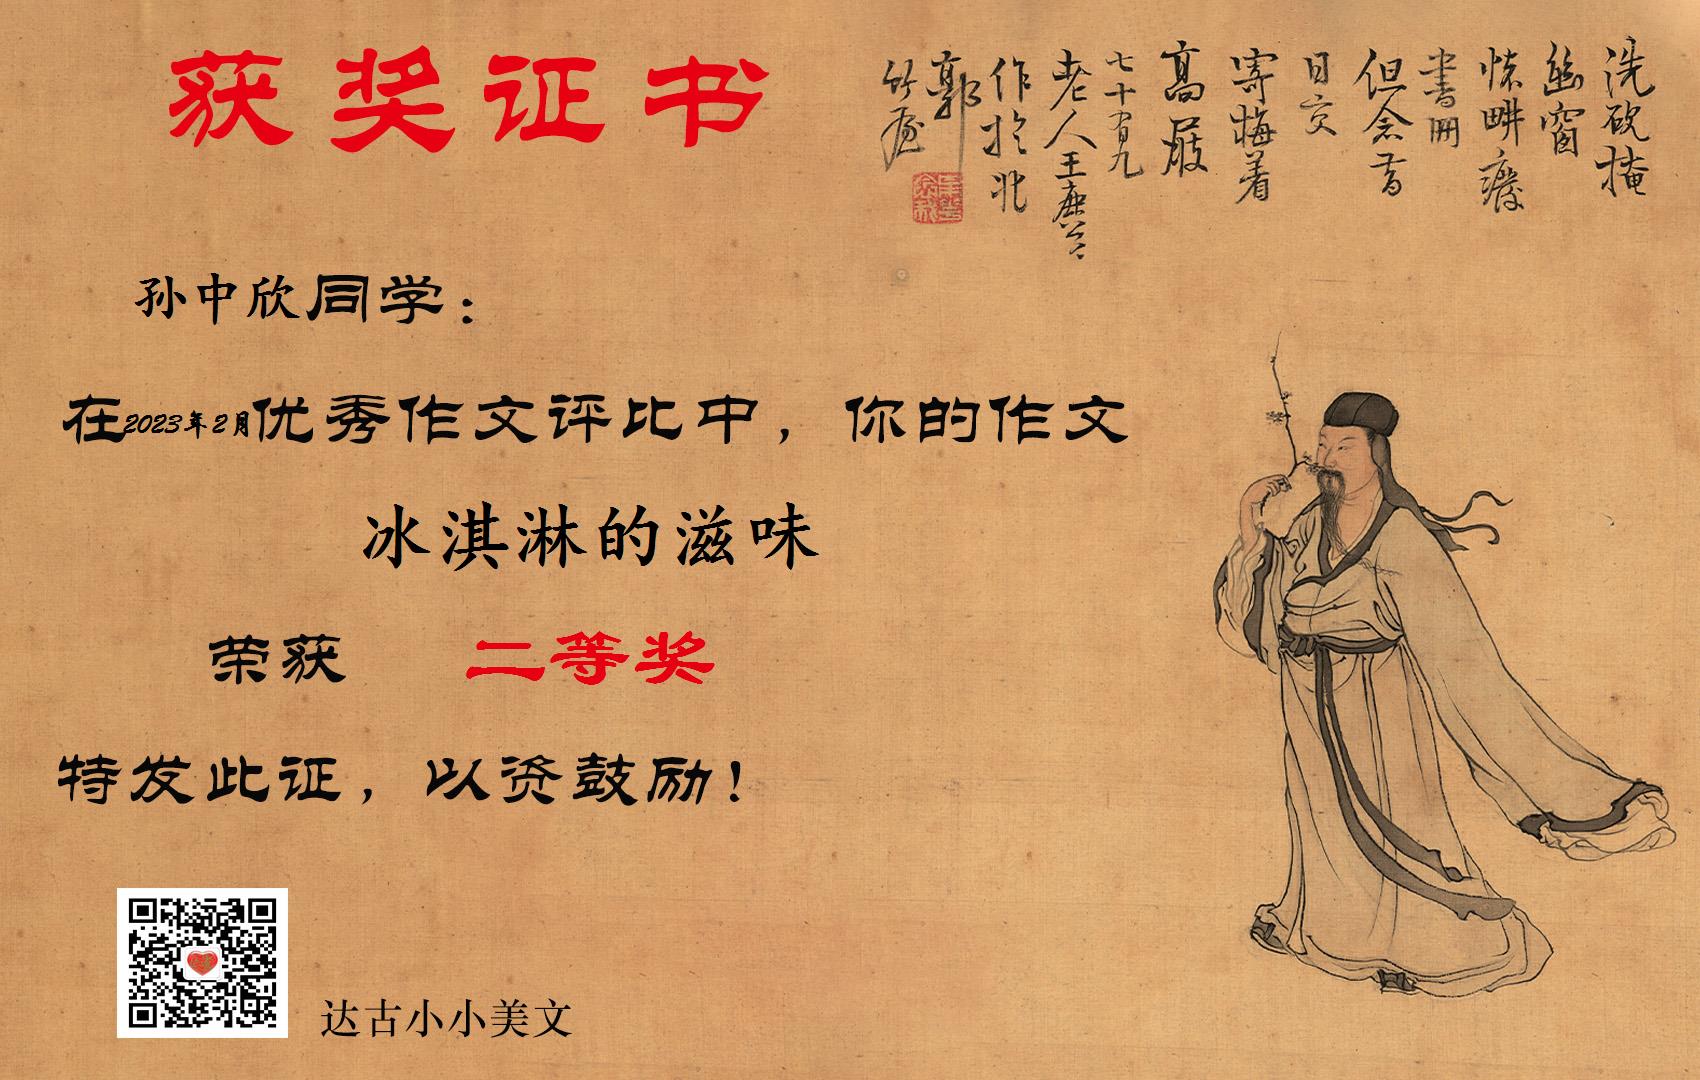 获奖证书
洗砚掩
幽窗
怀畊廢
書冊
但念昔
日交
寄梅着
高
七十有九
老人王
作於北
郭
竹
孙中欣同学：
在2023年2月优秀作文评比中，你的作文
冰淇淋的滋味
荣获 二等奖
特发此证，以资鼓励！
达古小小美文